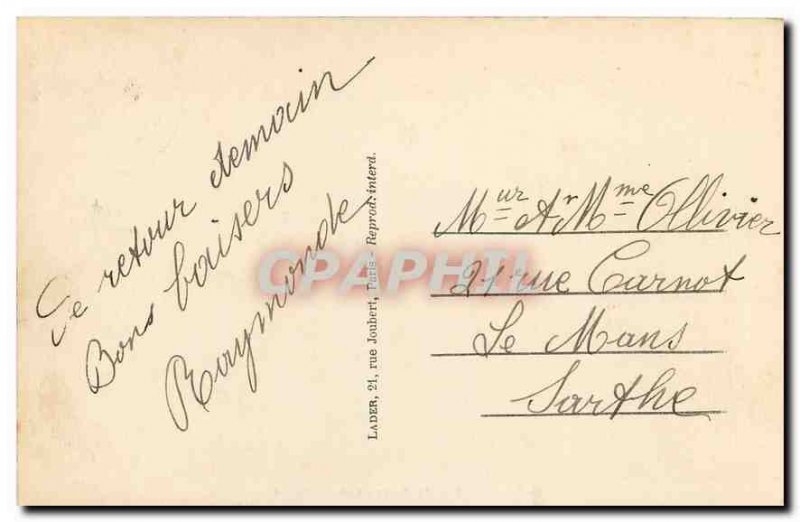 Ce retour demain
Bons baisers
Raymonde
LADER, 21, rue Joubert, Paris - Reprod. interd.
Mur Ar Mme Ollivier
21 rue Carnot
Le Mans
Sarthe
CPAPHIL